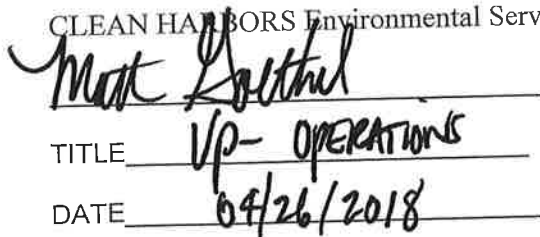 CLEAN HARBORS Environmental Serv
Matt Goethel
TITLE VP- OPERATIONS
DATE 04/26/2018